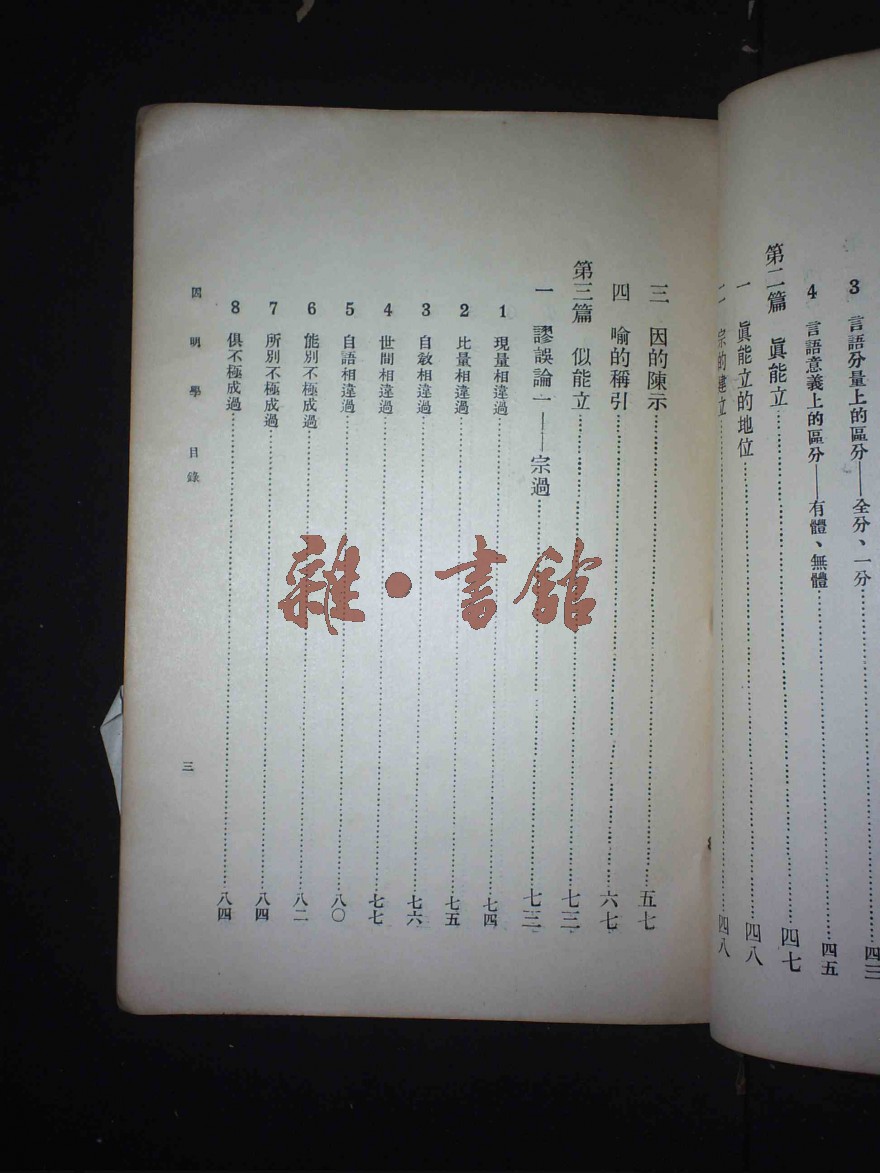 3 言語分量上的區分——全分、一分……四三
4 言語意義上的區分——有體、無體……四五
第二篇 眞能立……四七
一 眞能立的地位……四八
二 宗的建立……四八
三 因的陳示……五七
四 喻的稱引……六七
第三篇 似能立……七三
一 謬誤論一——宗過……七三
1 現量相違過……七四
2 比量相違過……七五
3 自敎相違過……七六
4 世間相違過……七七
5 自語相違過……八〇
6 能別不極成過……八二
7 所別不極成過……八四
8 俱不極成過……八四
因明學 目錄
三
雜·書館